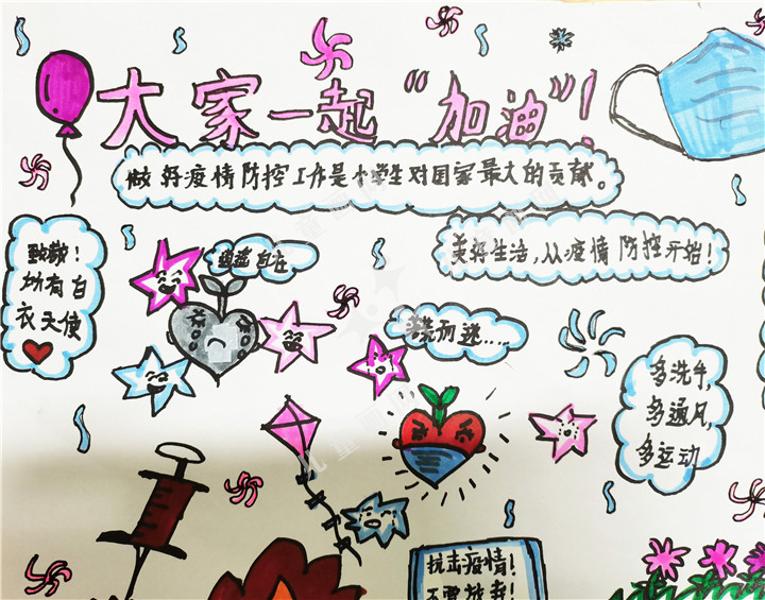 大家一起“加油”!
做好疫情防控工作是小学生对国家最大的贡献。
美好生活,从疫情防控开始!
致敬!
所有白
衣天使
逍遥自在
荒而逃.....
多洗手,
多通风,
多运动
抗击疫情!
不要放弃!